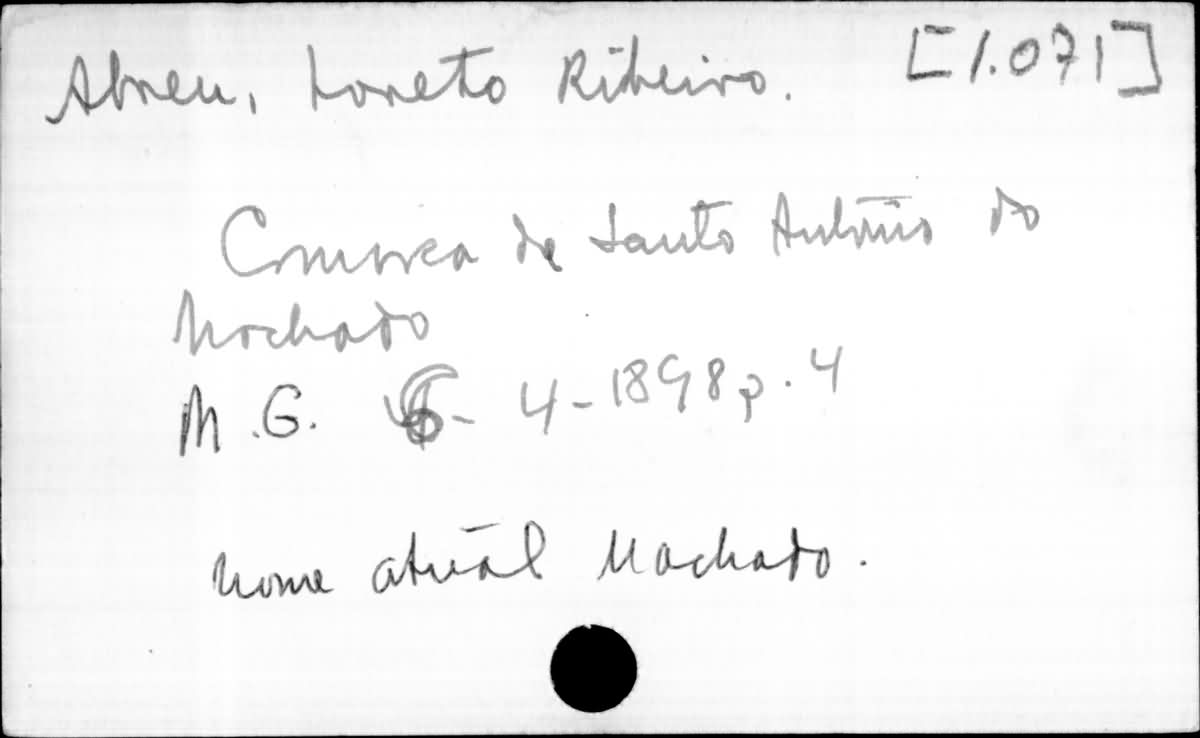 Abreu, Loreto Ribeiro. [1.071]
Comarca de Santo Antônio do
Machado
M.G. 6-4-1898 p. 4
nome atual Machado.